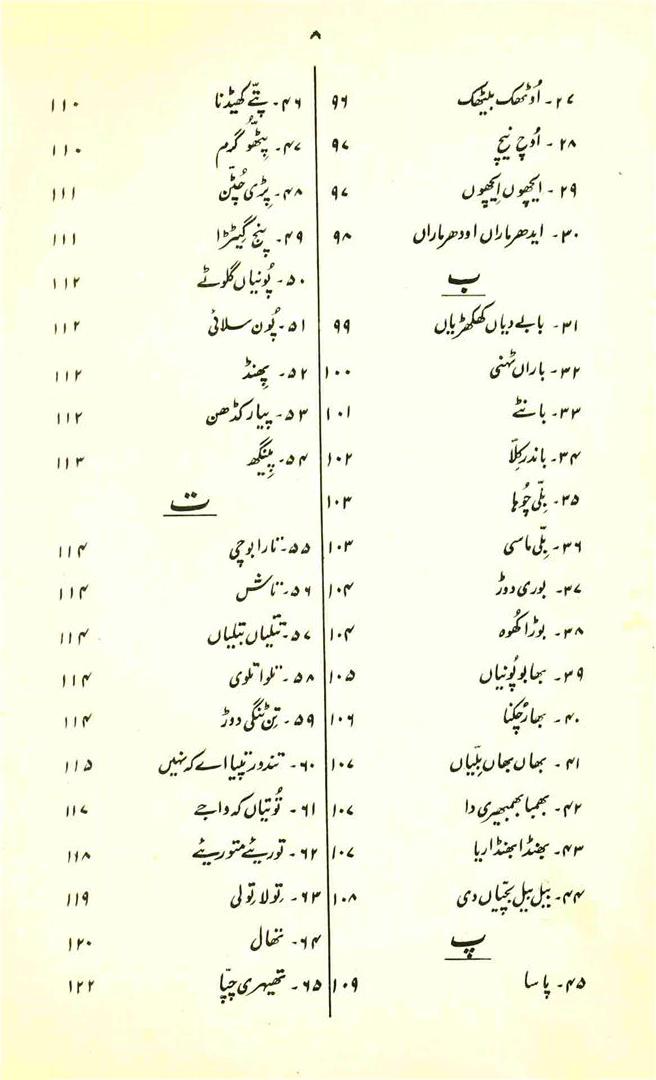 ۸
۲۷- اُوٹھک بیٹھک ۹۶
۲۸- اُوچ نیچ ۹۷
۲۹- ایچھوں اِیچھوں ۹۷
۳۰- ایدھر ماراں اودھر ماراں ۹۸
ب
۳۱- بابے دیاں کھکھڑیاں ۹۹
۳۲- باراں ٹہنی ۱۰۰
۳۳- بانٹے ۱۰۱
۳۴- باندر کِلّا ۱۰۲
۳۵- بِلّی چُوہا ۱۰۳
۳۶- بِلّی ماسی ۱۰۳
۳۷- بوری دوڑ ۱۰۴
۳۸- بوڑا کُھوہ ۱۰۴
۳۹- بھابو پُونیاں ۱۰۵
۴۰- بھار چُکنا ۱۰۶
۴۱- بھاں بھاں بِلّیاں ۱۰۷
۴۲- بھمبا بھمبھیری دا ۱۰۷
۴۳- بھنڈا بھنڈاریا ۱۰۷
۴۴- بیل بیل بچّیاں دی ۱۰۸
پ
۴۵- پاسا ۱۰۹
۴۶- پتّے کھیڈنا ۱۱۰
۴۷- پِٹّھُو گرم ۱۱۰
۴۸- پِڑی چُپّن ۱۱۱
۴۹- پنج گِیٹڑا ۱۱۱
۵۰- پُونیاں گلوٹے ۱۱۲
۵۱- پُون سلائی ۱۱۲
۵۲- پِھنڈ ۱۱۲
۵۳- پیار کڈھن ۱۱۲
۵۴- پِینگھ ۱۱۳
ت
۵۵- تارا بوچی ۱۱۴
۵۶- تاش ۱۱۴
۵۷- تتلیاں تتلیاں ۱۱۴
۵۸- تلوا تلوی ۱۱۴
۵۹- تِن ٹنگی دوڑ ۱۱۴
۶۰- تندور تپیا اے کہ نہیں ۱۱۵
۶۱- تُوتیاں کہ واجے ۱۱۷
۶۲- توریئے متوریئے ۱۱۸
۶۳- تولا تولی ۱۱۹
۶۴- تھال ۱۲۰
۶۵- تھیہری چپّا ۱۲۲